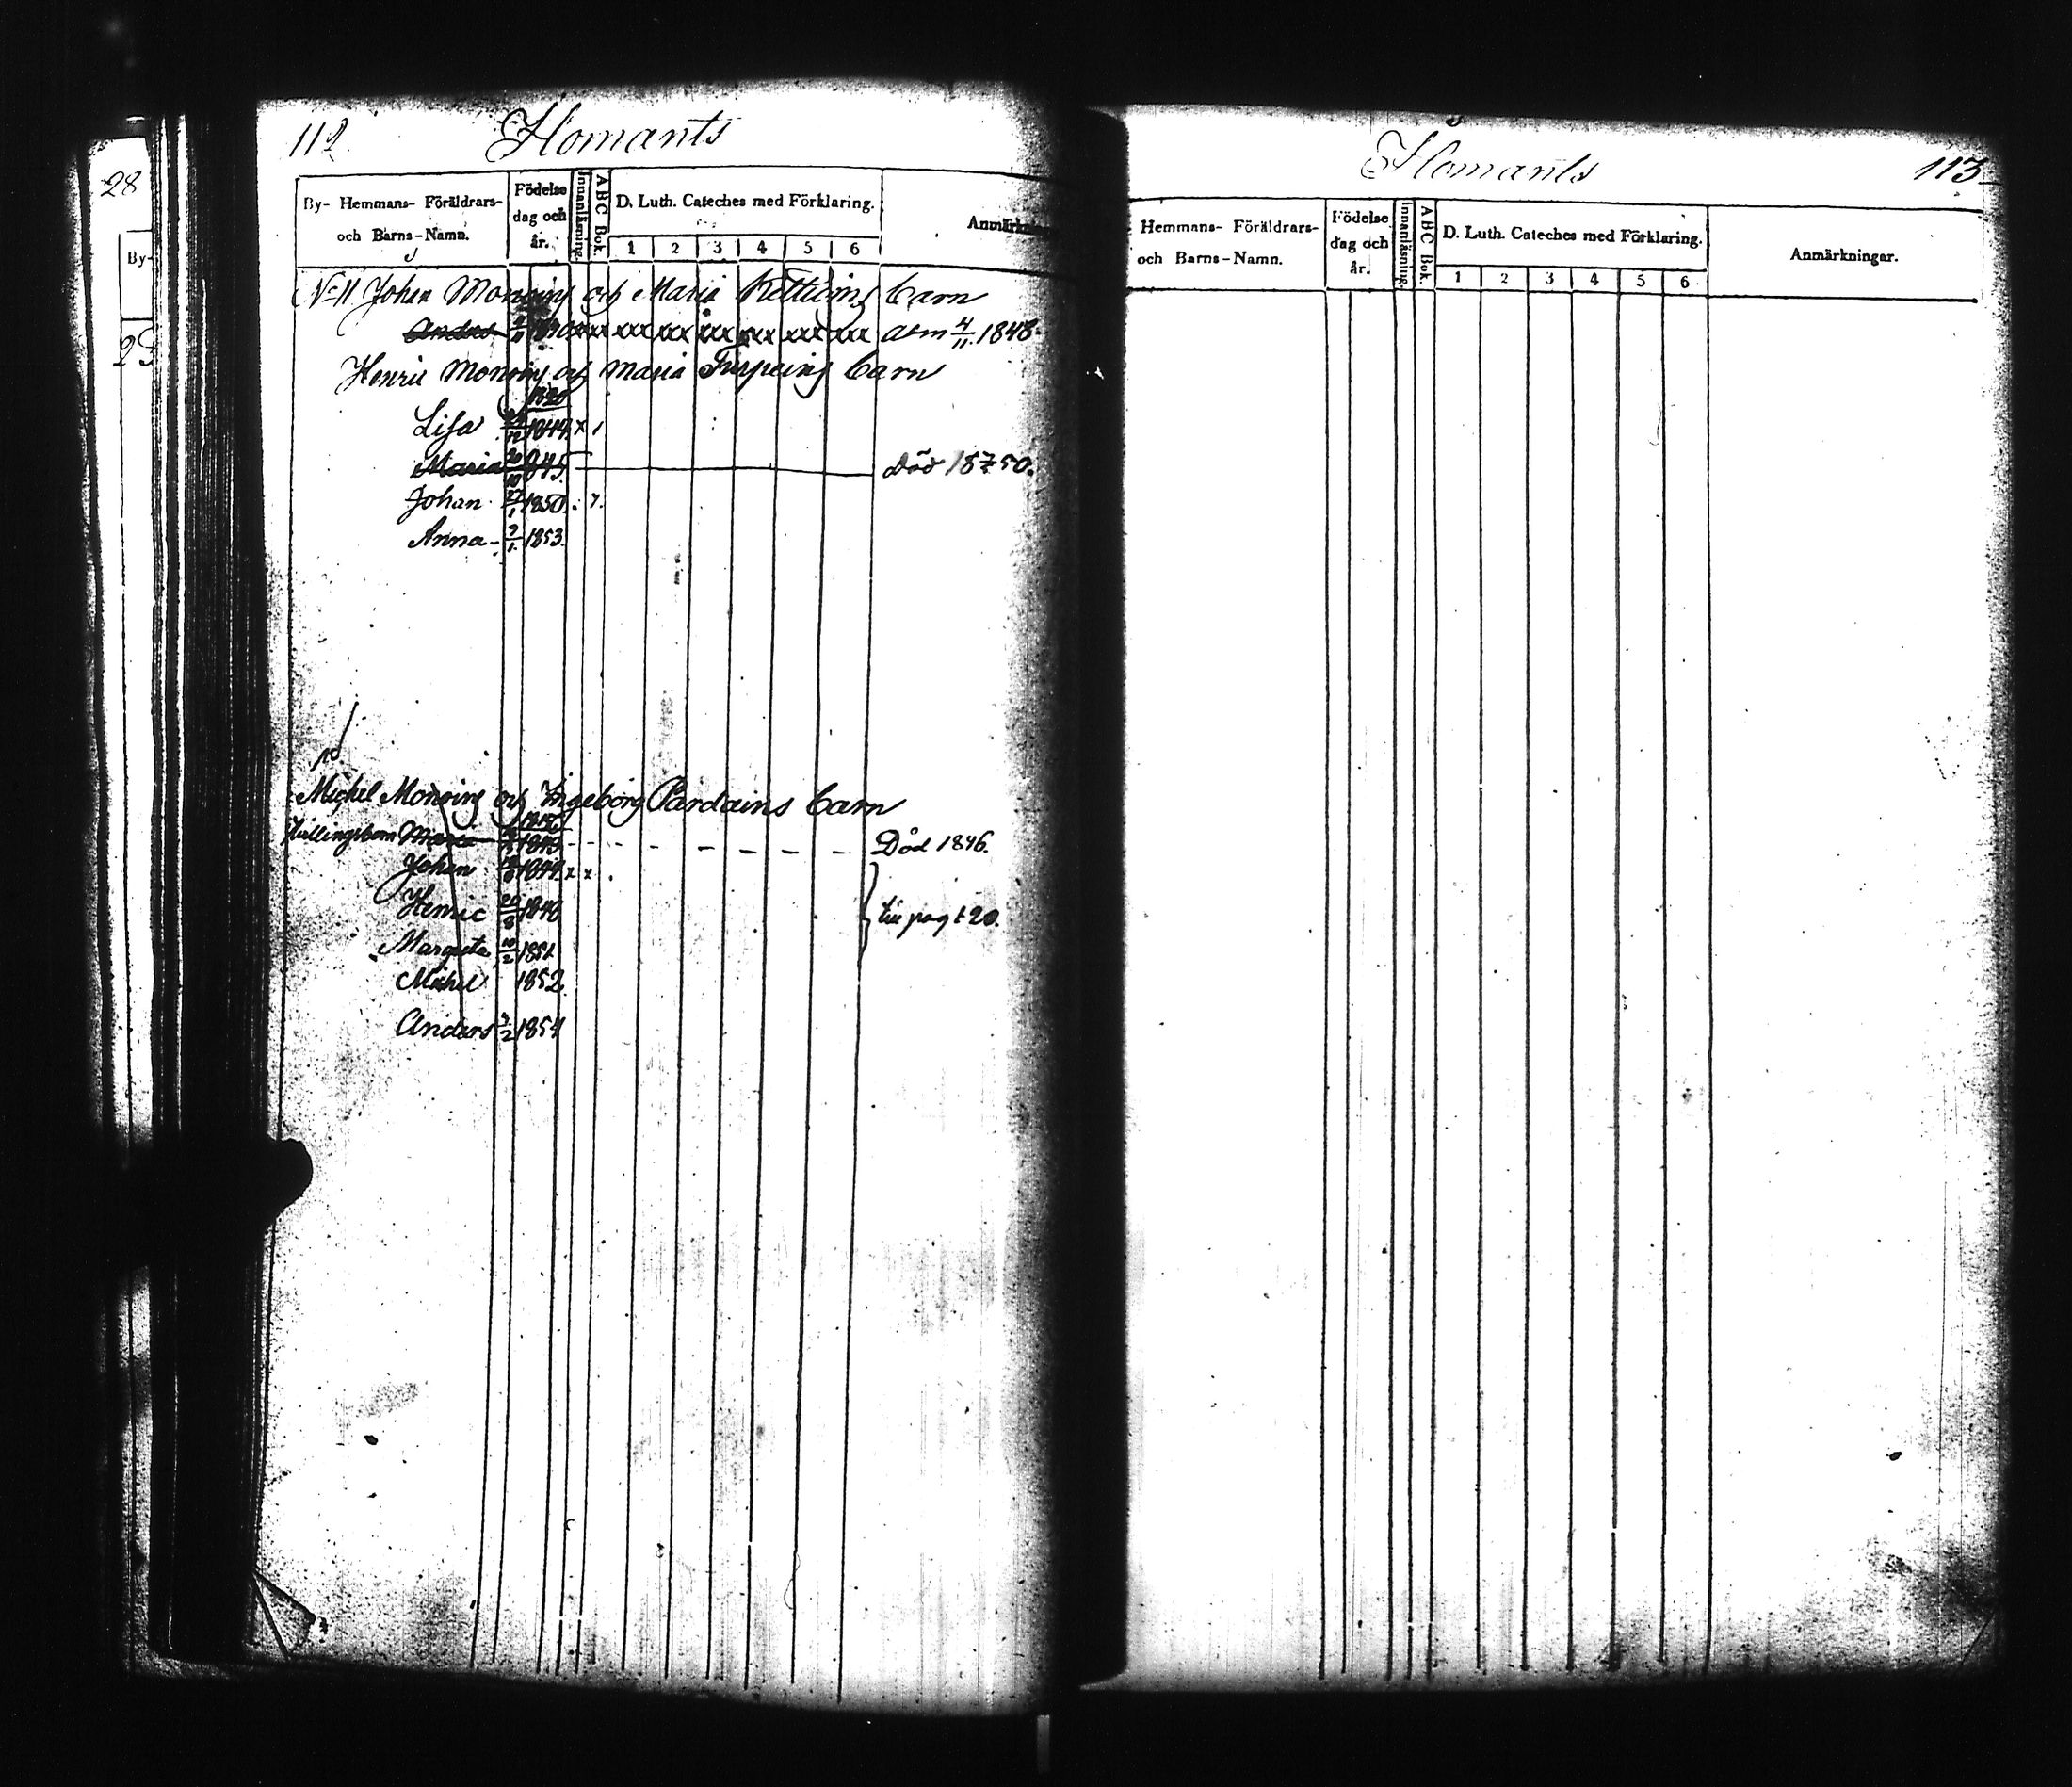 28
By-
23
112
Homants
By- Hemmans- Föräldrars-
och Barns-Namn.
Födelse
dag och
år.
Innanläsning.
ABC Bok.
D. Luth. Cateches med Förklaring.
1 2 3 4 5 6
N=11 Johan och Maria barn
Anders xxx xxx xxx xxx xxx xxx 4/11 1848
Henric och Maria barn
Lisa 12 1844 x
Maria 20/10 845 Död 1850.
Johan 1 1850
Anna 7/1 1853
Michel och Ingeborg barn
Maria 1843 Död 1846.
Johan 1844 x x
Henric 20/8 1848 pag 120.
Margeta 10/2 1851
Michel 1852
Anders 2 1854
Homants
113
Hemmans- Föräldrars-
och Barns-Namn.
Födelse
dag och
år.
Innanläsning.
ABC Bok.
D. Luth. Cateches med Förklaring.
1 2 3 4 5 6
Anmärkningar.